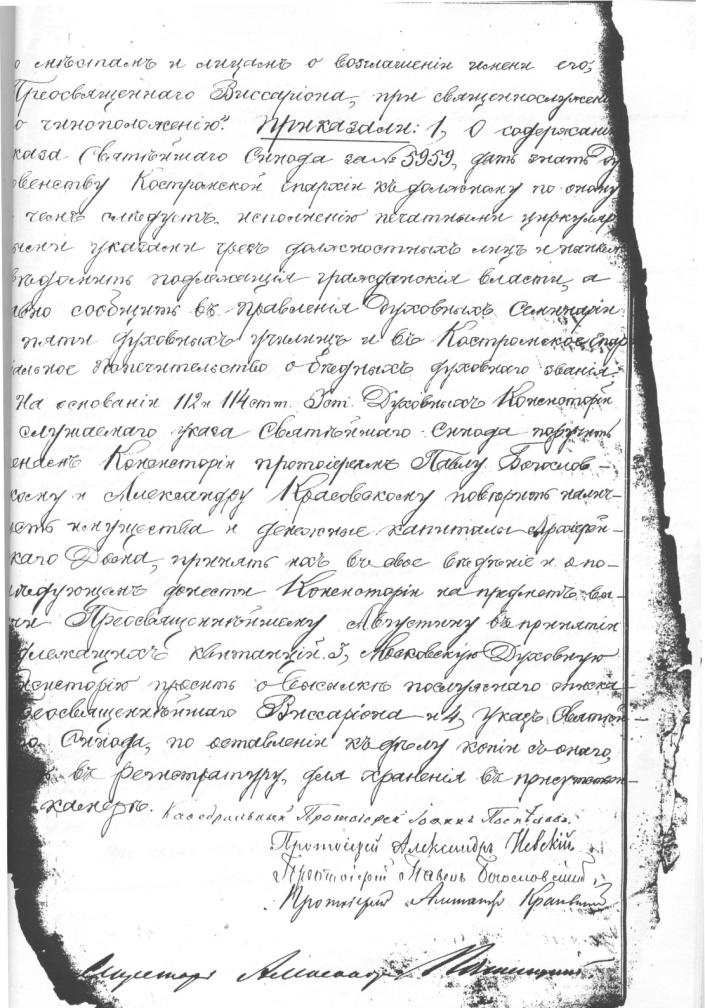 мѣстамъ и лицамъ о возглашеніи имени его,
Преосвященнаго Виссаріона, при священнослуженіи
по чиноположенію". Приказали: 1, О содержаніи
каза Святѣйшаго Синода за № 5959, дать знать Ду
овенству Костромской епархіи къ должному по оному
чемъ слѣдуетъ исполненію печатными циркуляр
ными указами чрезъ должностныхъ лицъ и
вѣдомить подлежащія гражданскія власти, а
авно сообщить въ Правленія Духовныхъ Семинаріи
пяти духовныхъ училищъ и въ Костромское Епар
іальное Попечительство о бѣдныхъ духовнаго званія.
На основаніи 112 и 114 стт. Уст. Духовныхъ Консисторій
слушаемаго указа Святѣйшаго Синода поручить
енамъ Консисторіи протоіереямъ Павлу Богослов-
скому и Александру Красовскому повѣрить налич-
ость имущества и денежные капиталы Архіерей-
скаго Дома, принять ихъ въ свое вѣдѣніе и о по-
слѣдующемъ донести Консисторіи на предметъ вы-
чи Преосвященнѣйшему Августину въ принятіи
длежащихъ квитанцій. 3, Московскую Духовную
нсисторію просить о высылкѣ послужного списка
реосвященнѣйшаго Виссаріона и 4, указъ Святѣй-
го Синода, по оставленіи къ дѣлу копіи съ онаго,
въ регистратуру, для храненія въ присутствен-
камерѣ. Каѳедральный Протоіерей Іоаннъ Поспѣловъ.
Протоіерей Александръ Невскій.
Протоіерей Павелъ Богословскій.
Протоіерей
Секретарь